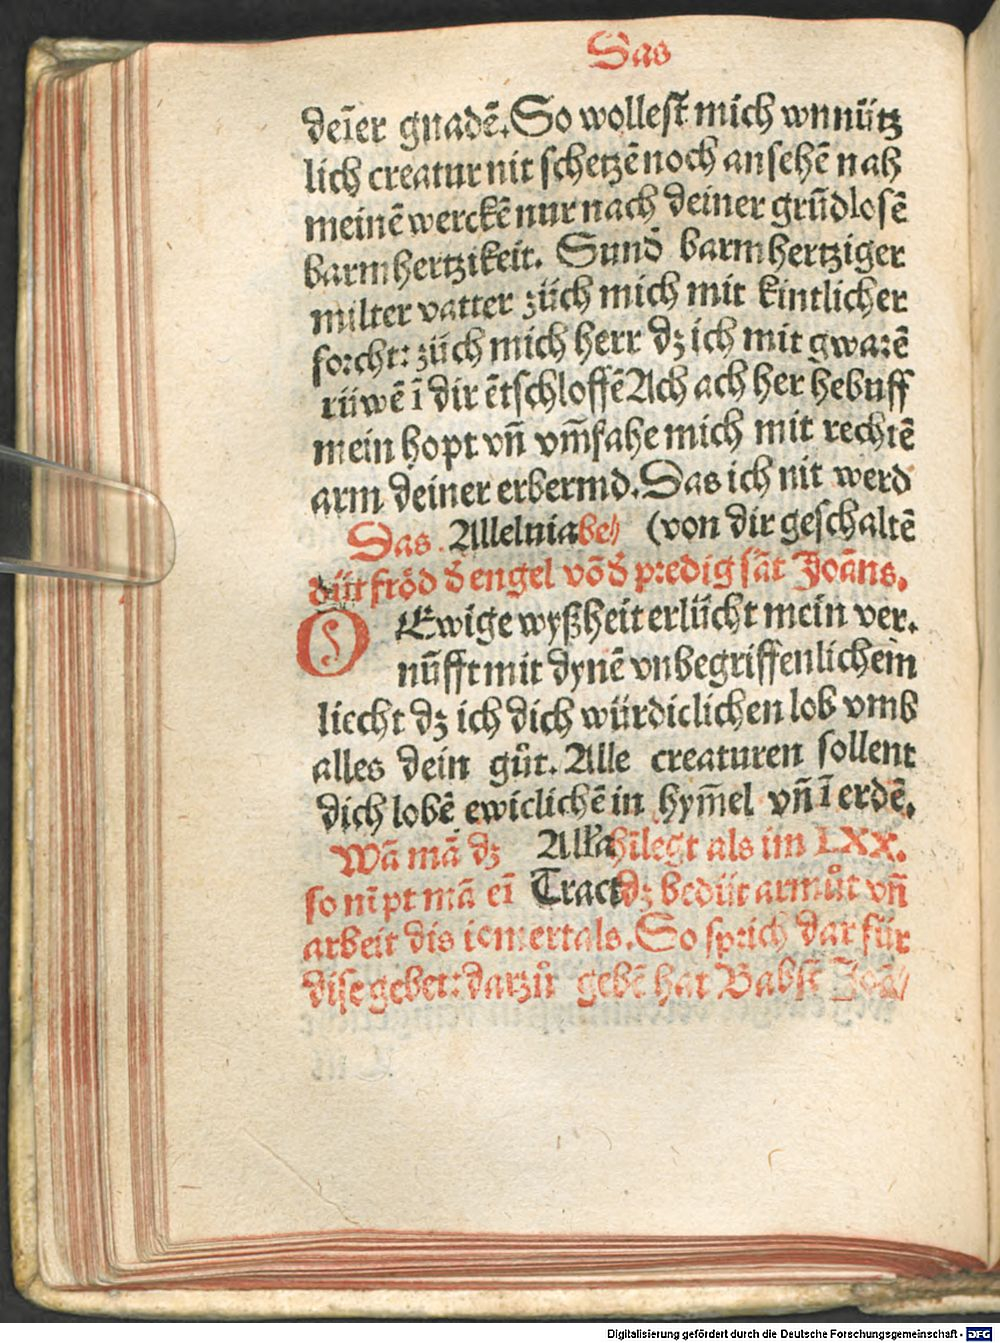 Das
deīer gnadē. So wollest mich wnnütz
lich creatur nit schetzē noch ansehē nah
meinē werckē nur nach deiner grūdlosē
barmhertzikeit. Sund̄ barmhertziger
milter vatter züch mich mit kintlicher
forcht: züch mich herr dz ich mit gwarē
rüwē ī dir ētschloffē Ach ach her hebuff
mein hopt vn̄ vm̄fahe mich mit rechtē
arm deiner erbermd. Das ich nit werd
Das. Alleluia be⸗ (von dir geschaltē
düt fröd d̄ engel vōd̄ predig sāt Joāns.
O Ewige wyßheit erlücht mein ver.
nūfft mit dynē vnbegriffenlichem
liecht dz ich dich würdiclichen lob vmb
alles dein gůt. Alle creaturen sollent
dich lobē ewiclichē in hym̄el vn̄ ī erdē.
Wā mā dz Alla hīlegt als im LXX.
so nīpt mā eī Tract dz bedüt armůt vn̄
arbeit dis iomertals. So sprich dar für
dise gebet: darzů gebē hat Babst Joā⸗
Digitalisierung gefördert durch die Deutsche Forschungsgemeinschaft - DFG